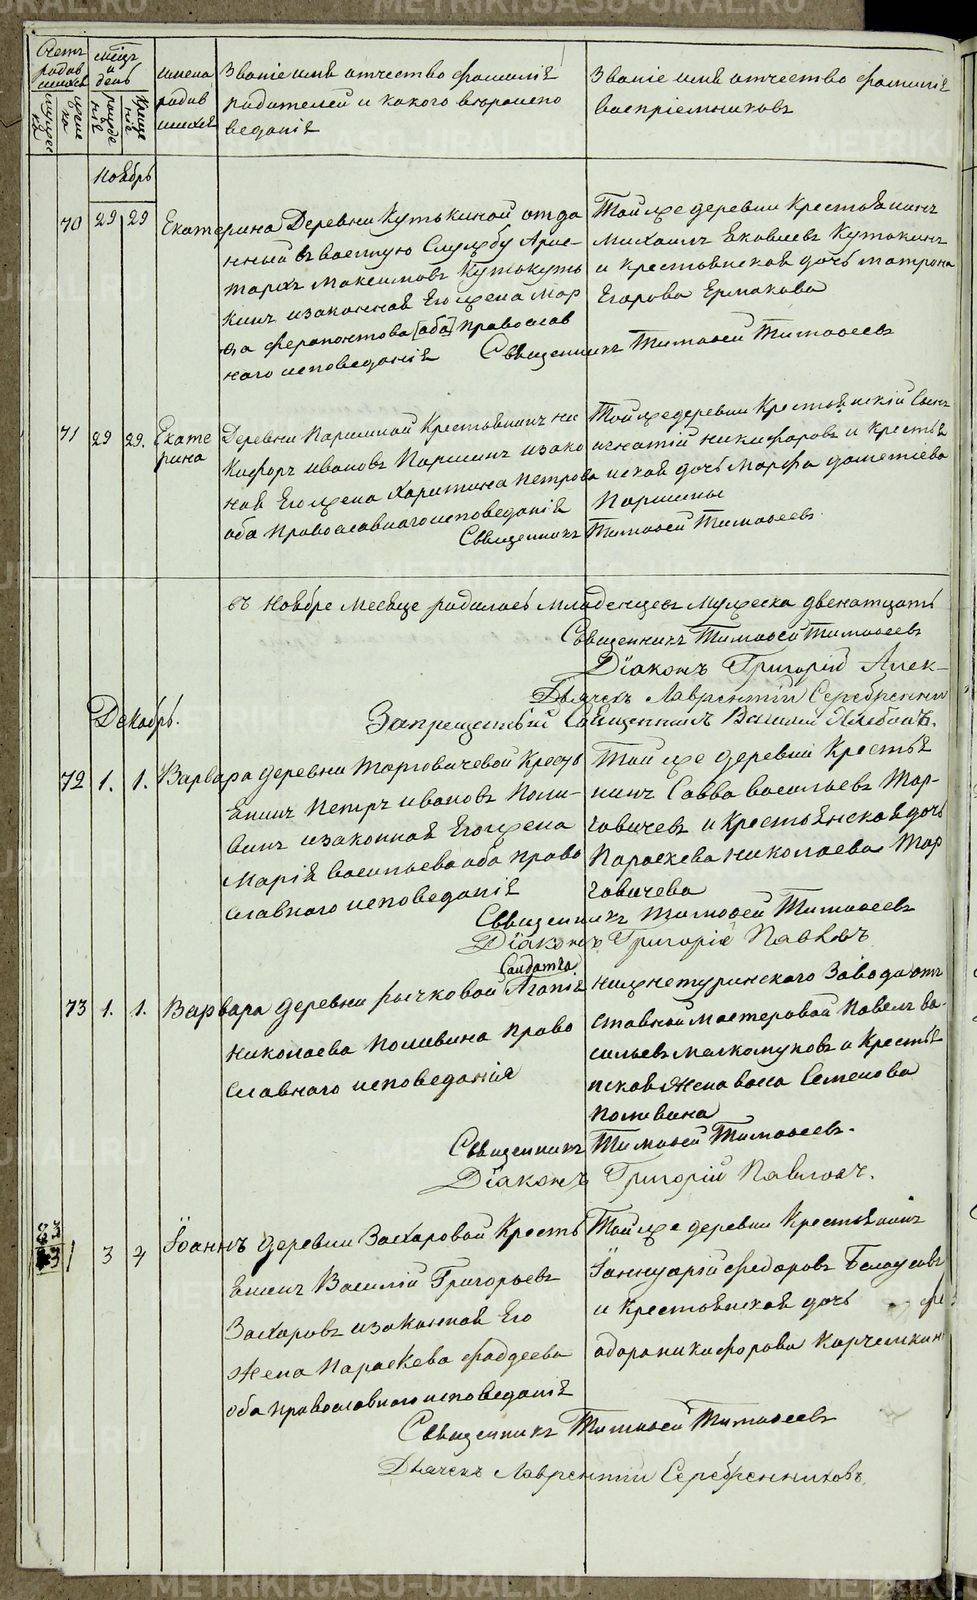 Счетъ родившихся
мужеска
женска
месяцъ и день
рожденія
крещенія
имена родившихся
Званіе имя отчество фамилія
родителей и какого вероиспо
веданія
Званіе имя отчество фамилія
воспріемниковъ
Ноябрь
70 29 29 Екатерина Деревни Кутькиной отда
нный въ военную Службу
Максимовъ
кинъ и законная Его жена Мар
фа ферапонтова [оба] православ
наго исповеданія
Той же деревни Крестьянинъ
Михаилъ Яковлевъ Кутькинъ
и крестьянская дочь матрона
Егорова Ермакова
Священникъ Тимофей Тимофеевъ
71 29 29. Екате
рина
Деревни Паршиной Крестьянинъ ни
кифоръ ивановъ Паршинъ и зако
ная Его жена Харитина петрова
оба Православнаго исповеданія
Той же деревни Крестьянскій Сынъ
игнатій никифоровъ и крестья
нская дочь Марфа дометіева
Паршины
Священникъ Тимофей Тимофеевъ
въ ноябре месяце родилось младенцевъ мужеска двенатцать
Священникъ Тимофей Тимофеевъ
Діаконъ Григорій
Дьячекъ Лаврентій Серебренни
Запрещеный Священникъ Василій
Декабрь.
72 1. 1. Варвара деревни Торговичевой Кресть
янинъ Петръ ивановъ Поли-
винъ и законная Его жена
Марія васильева оба право
славнаго исповеданія
Той же деревни Кресть
нинъ Савва васильевъ Тор-
говичевъ и Крестьянская дочь
Параскева николаева Тор
говичева
Священникъ Тимофей Тимофеевъ
Діаконъ Григорій Павловъ
73 1. 1. Варвара деревни рычковой Солдатка Агапія
николаева Поливина право
славнаго исповеданія
нижнетуринского Завода от
ставной мастеровой Павелъ ва
сильевъ и Кресть
нская Жена васа Семенова
поливина
Священникъ Тимофей Тимофеевъ.
Діаконъ Григорій Павловъ.
83
3 4 Іоаннъ деревни Захаровой Кресть
янинъ Василій Григорьевъ
Захаровъ и законная Его
Жена Параскева фадеева
оба православнаго исповеданія
Той же деревни Крестьянинъ
Іаннуарій федоровъ Балаусовъ
и крестьянская дочь фе
одора никифорова
Священникъ Тимофей Тимофеевъ
Дьячекъ Лаврентій Серебренниковъ
METRIKI.GASO-URAL.RU